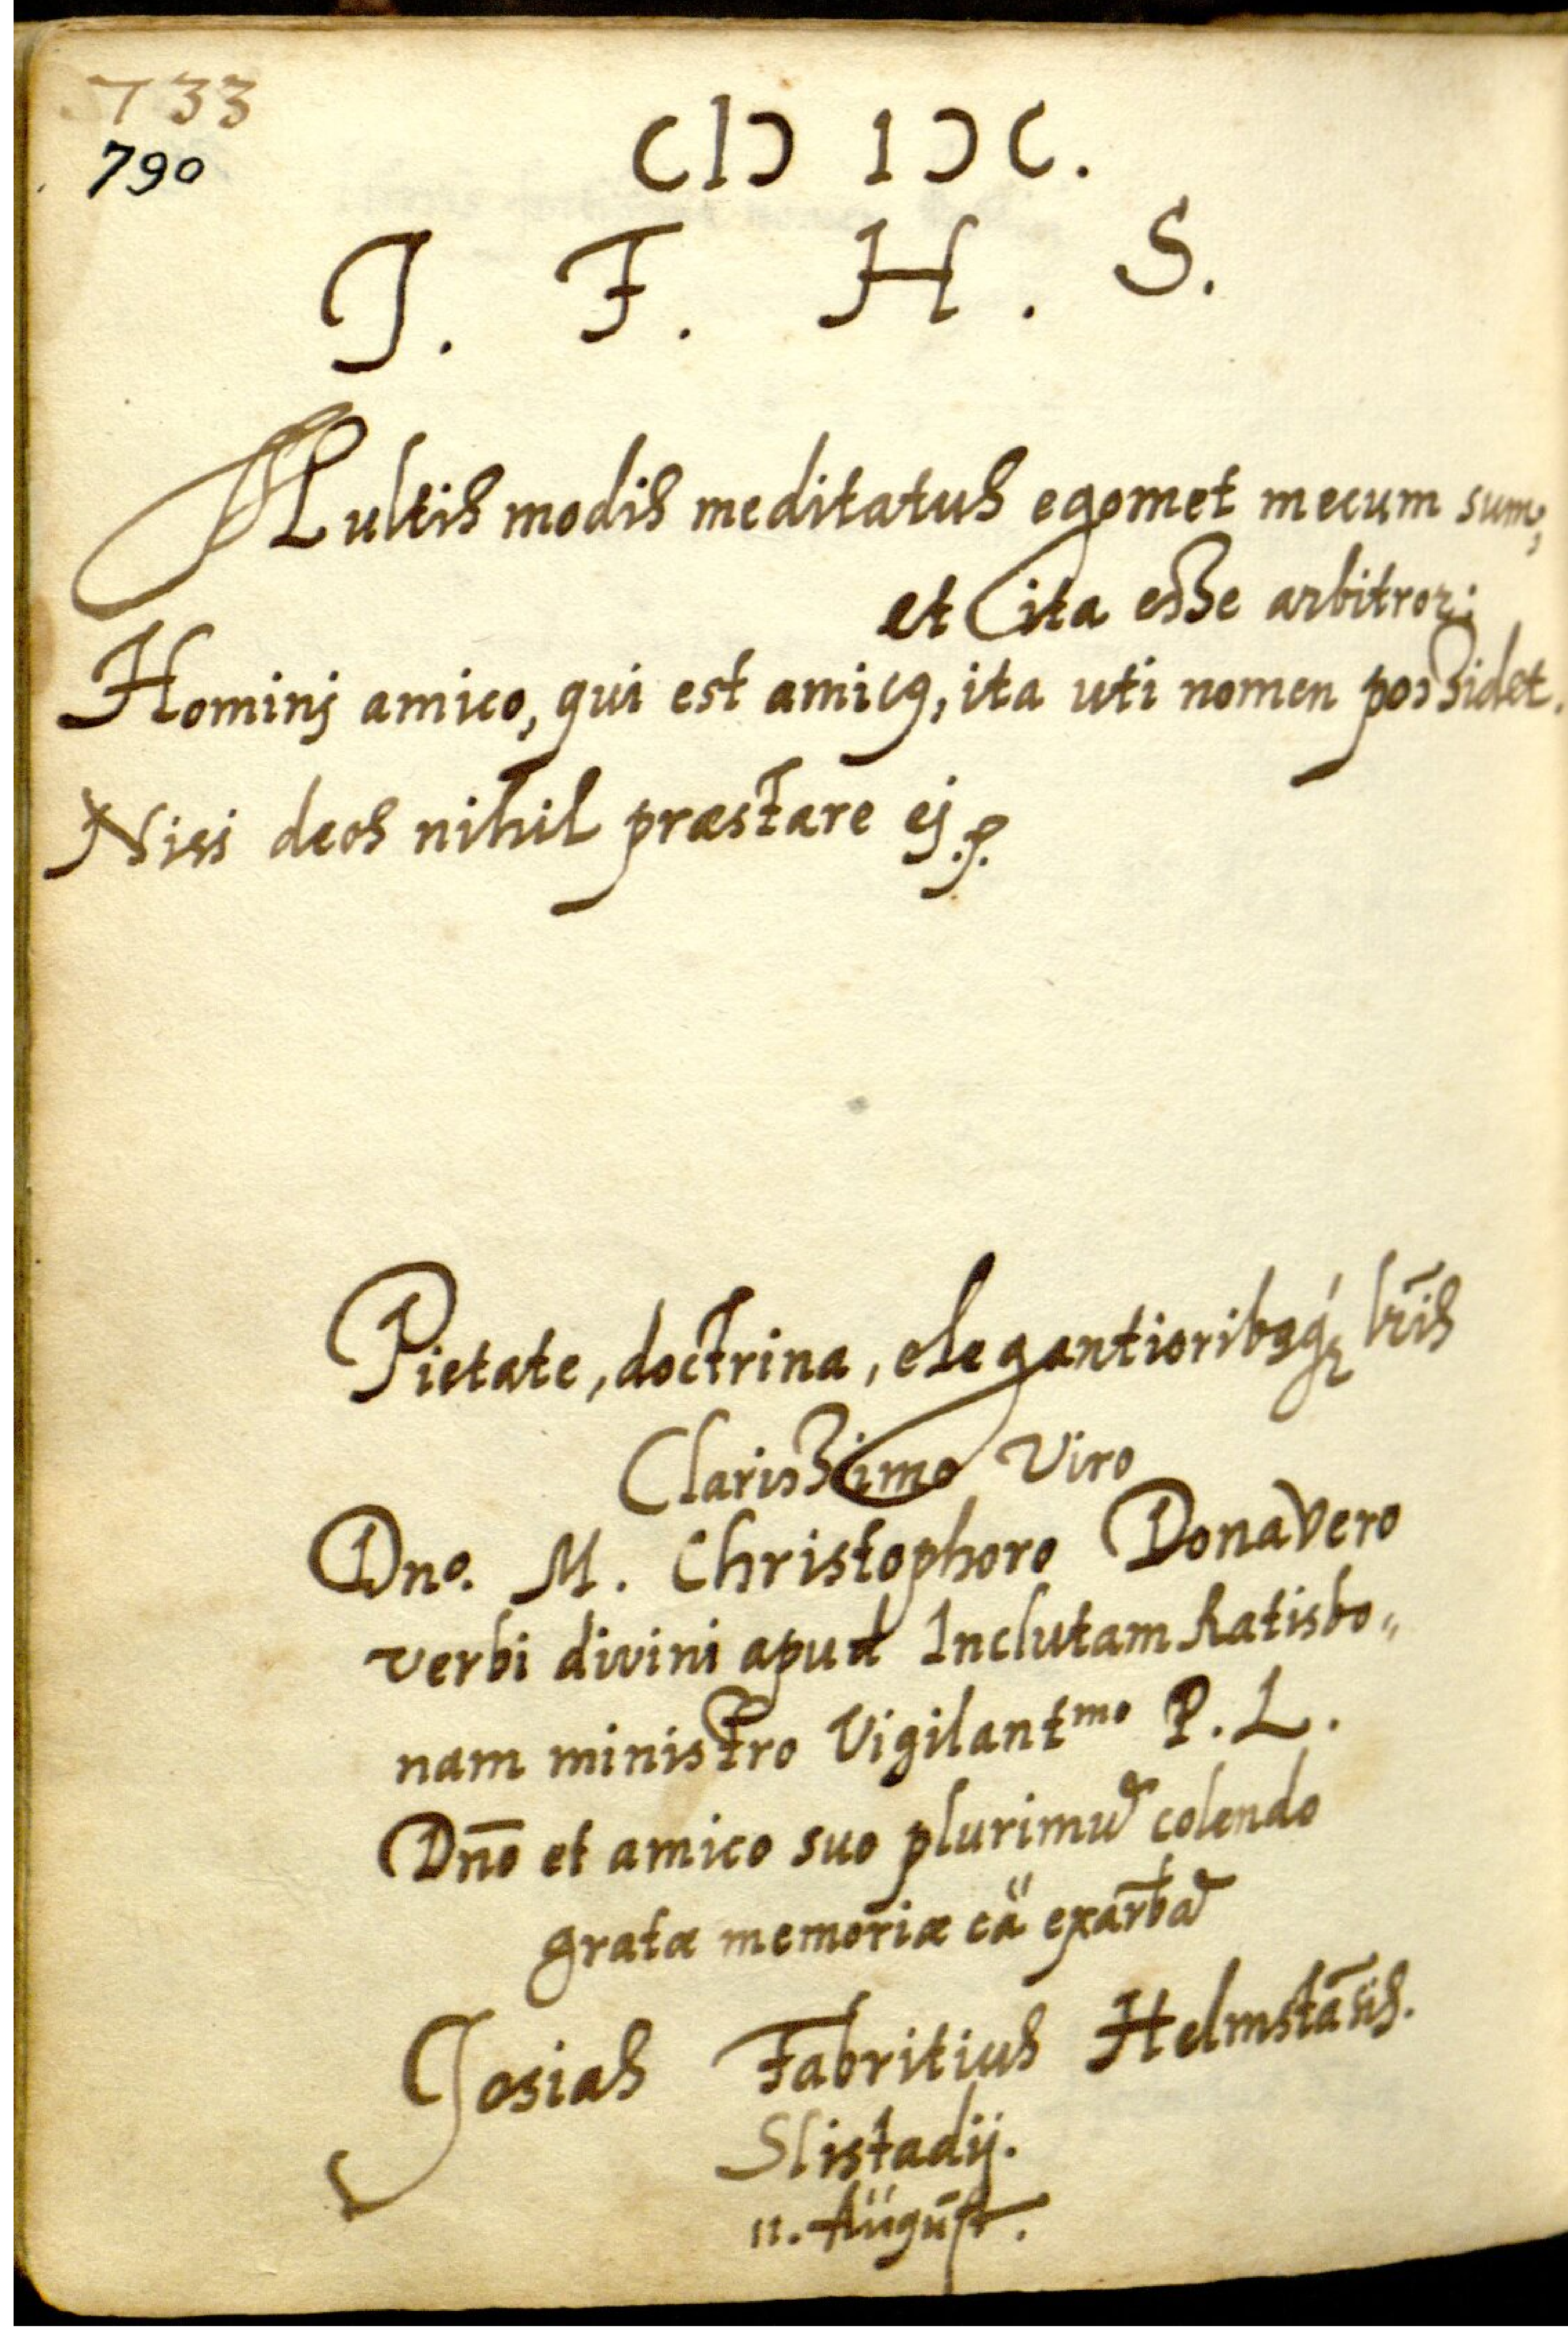 733
790
CIↃ IↃC.
J. F. H. S.
Multis modis meditatus egomet mecum sum,
et ita esse arbitror:
Hominj amico, qui est amicꝰ, ita uti nomen possidet.
Nisi deos nihil præstare ej.
Pietate, doctrina, elegantioribꝰq́ꝫ lr̄is
Clarissimo Viro
Dno. M. Christophoro Donavero
verbi divini apud Inclutam Ratisbo„
nam ministro Vigilantmo P. L.
Dn̄o et amico suo plurimū colendo
gratæ memoriæ cā exarb̄a
Josias Fabritius Helmstān̄s.
Slistadij.
11. August.